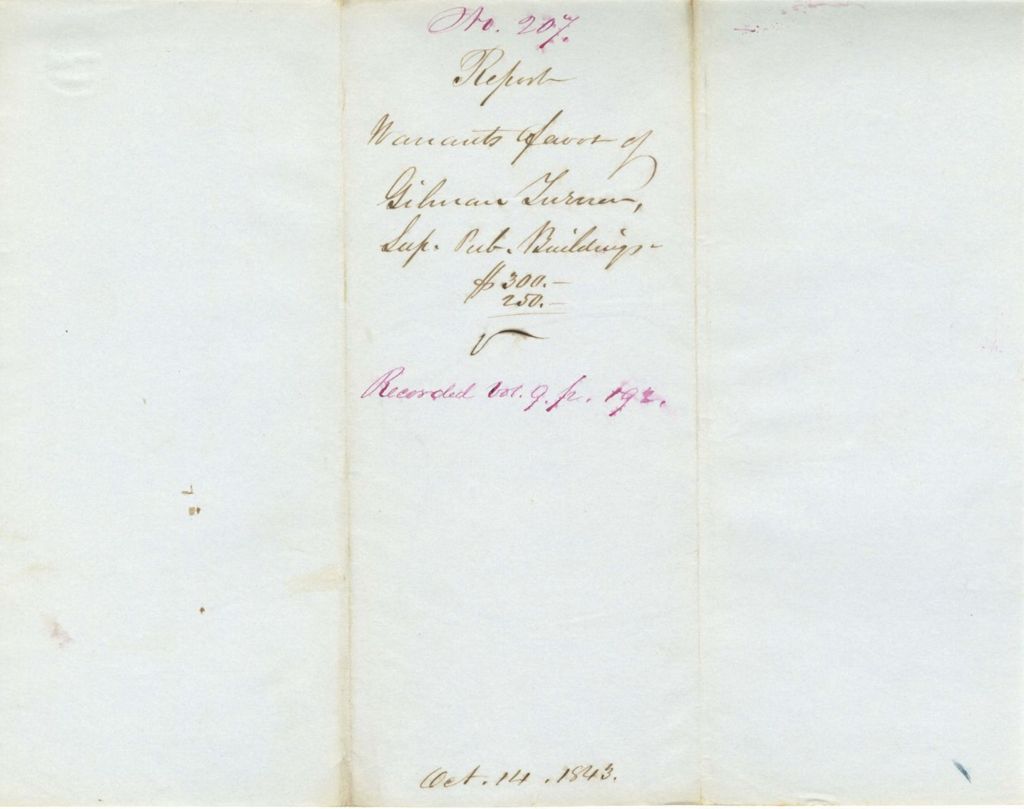 No. 207.
Report
Warrants favor of
Gilman Turner,
Sup. Pub. Buildings-
$300.-
250.-
Recorded Vol. 9. p. 192.
Oct. 14. 1843.